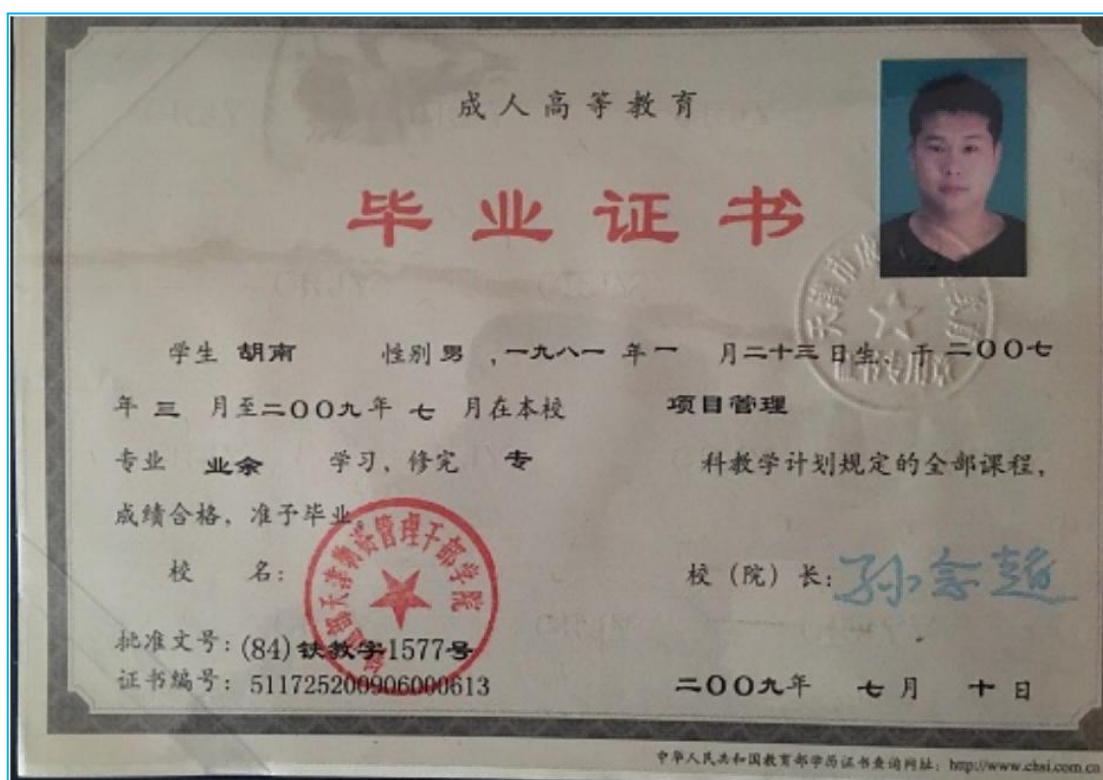 成人高等教育
毕业证书
学生 胡南 性别 男 ,一九八一 年 一 月 二十三 日生、于 二〇〇七
年 三 月至 二〇〇九 年 七 月在本校 项目管理
专业 业余 学习, 修完 专 科教学计划规定的全部课程,
成绩合格, 准予毕业
校 名: 校 (院) 长:
天津物资管理干部学院
批准文号: (84) 铁教字1577号
证书编号: 511725200906000613 二〇〇九年 七 月 十 日
中华人民共和国教育部学历证书查询网址: http://www.chsi.com.cn